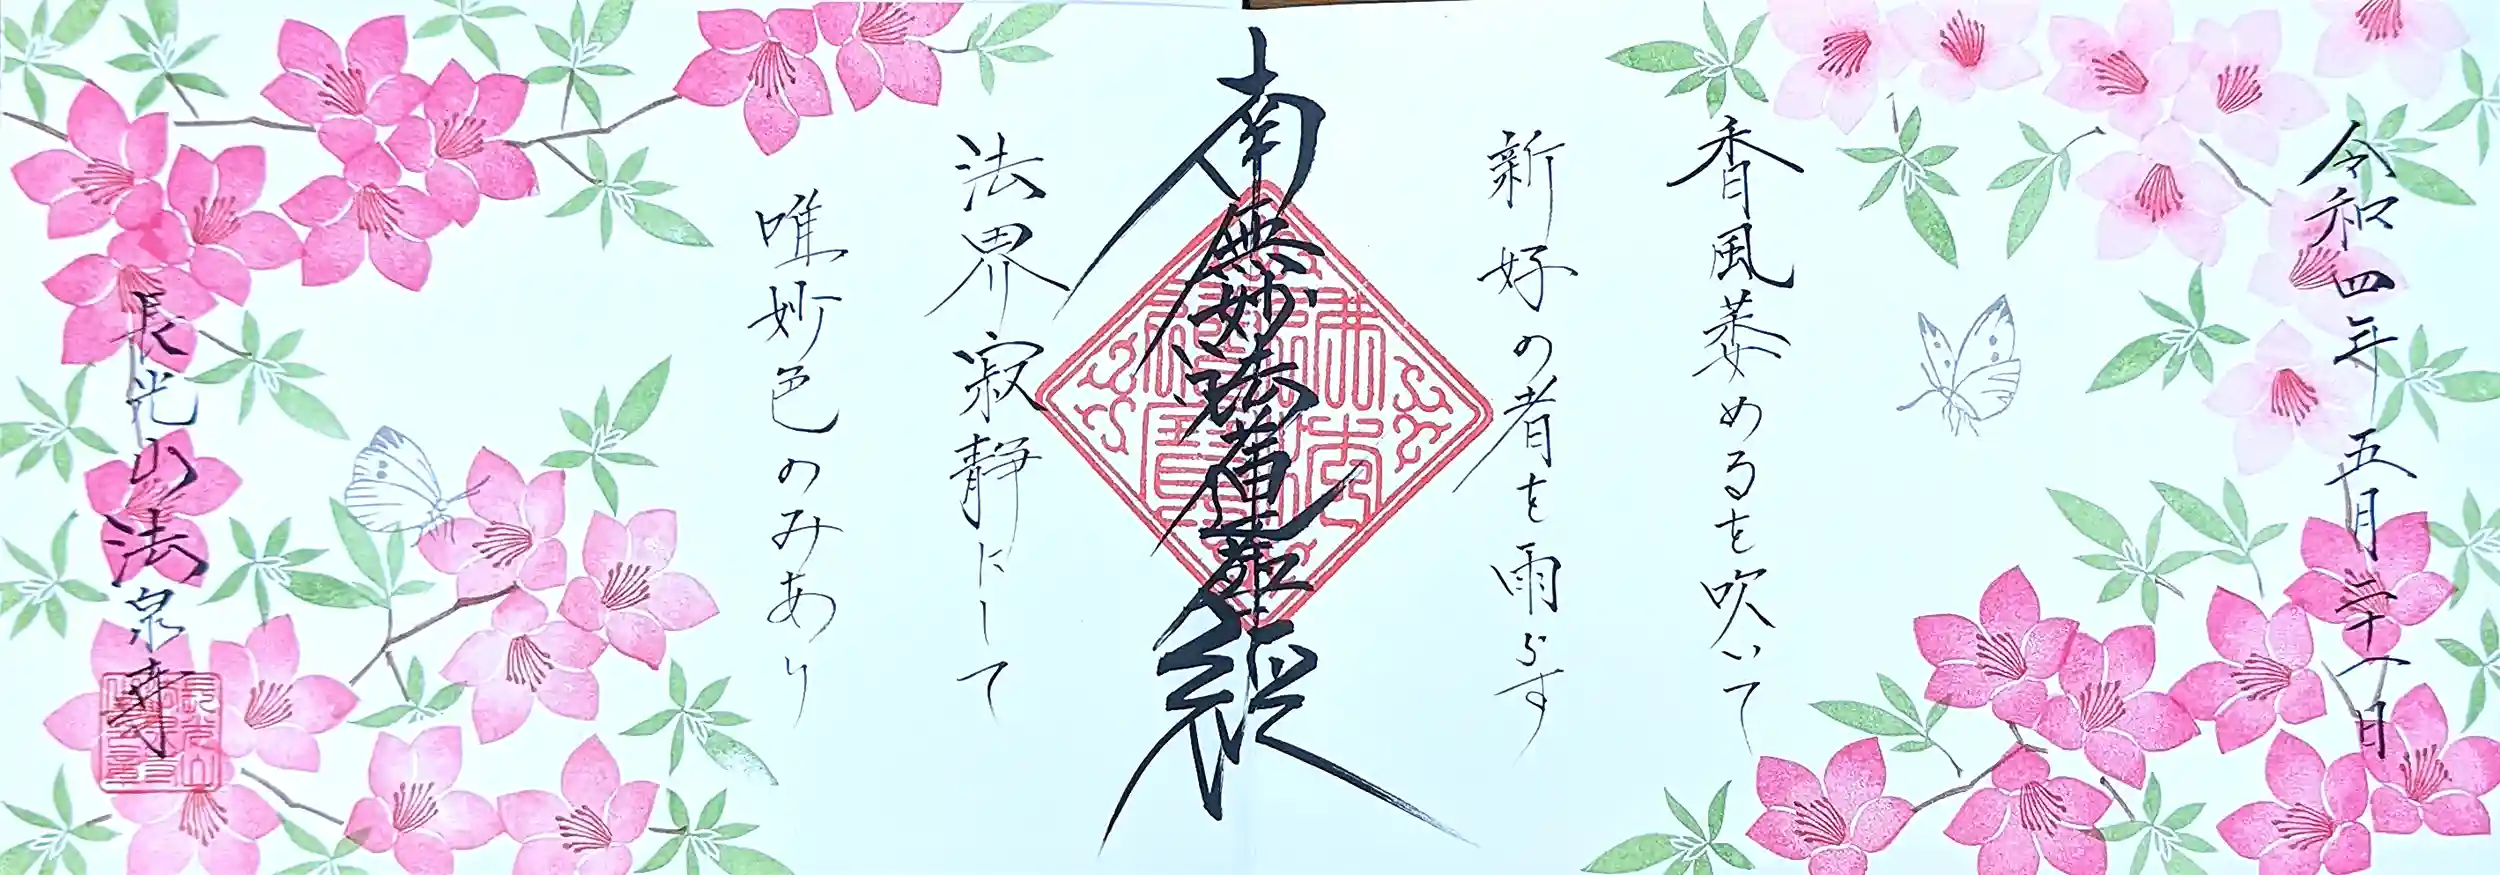 令和四年五月二十一日
香風萎めるを吹いて
新好の者を雨らす
南無妙法蓮華経
法界寂静にして
唯妙色のみあり
長光山法泉寺